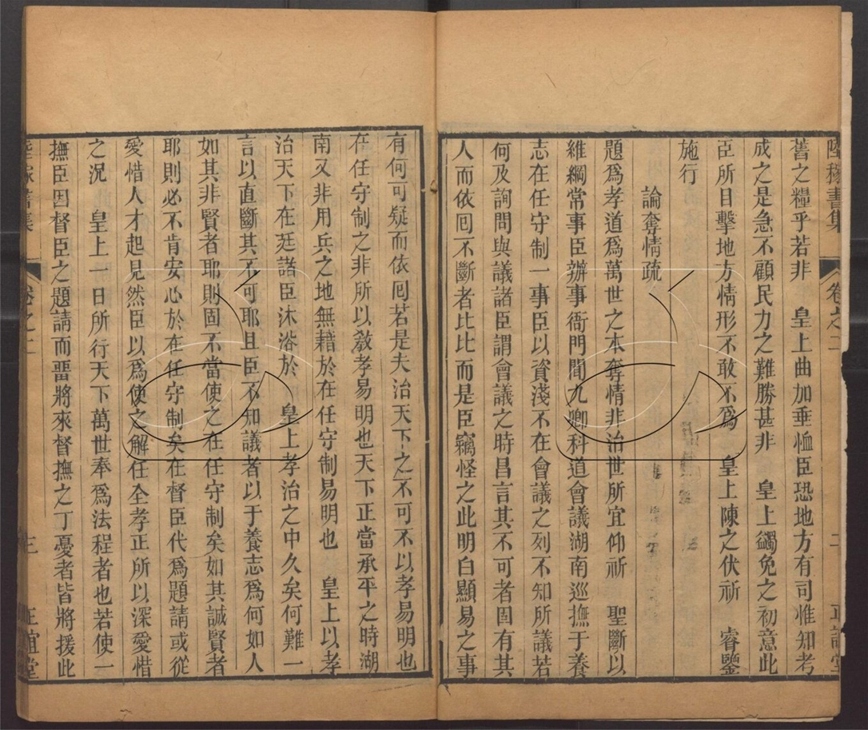 陸稼書集 卷之二 二 正誼堂
蓄之糧乎若非 皇上曲加垂恤臣恐地方有司惟知考
成之是急不顧民力之難勝甚非 皇上蠲免之初意此
臣所目擊地方情形不敢不爲 皇上陳之伏祈 睿鑒
施行
論奪情疏
題爲孝道爲萬世之本奪情非治世所宜仰祈 聖斷以
維綱常事臣辦事衙門聞九卿科道會議湖南巡撫于養
志在任守制一事臣以資淺不在會議之列不知所議若
何及詢問與議諸臣謂會議之時昌言其不可者固有其
人而依囘不斷者比比而是臣竊怪之此明白顯易之事
有何可疑而依囘若是夫治天下之不可不以孝易明也
在任守制之非所以敎孝易明也天下正當承平之時湖
南又非用兵之地無藉於在任守制易明也 皇上以孝
治天下在廷諸臣沐浴於 皇上孝治之中久矣何難一
言以直斷其不可耶且臣不知議者以于養志爲何如人
如其非賢者耶則固不當使之在任守制矣如其誠賢者
耶則必不肯安心於在任守制矣在督臣代爲題請或從
愛惜人才起見然臣以爲使之解任全孝正所以深愛惜
之況 皇上一日所行天下萬世奉爲法程者也若使一
撫臣因督臣之題請而畱將來督撫之丁憂者皆將援此
陸稼書集 卷之二 三 正誼堂